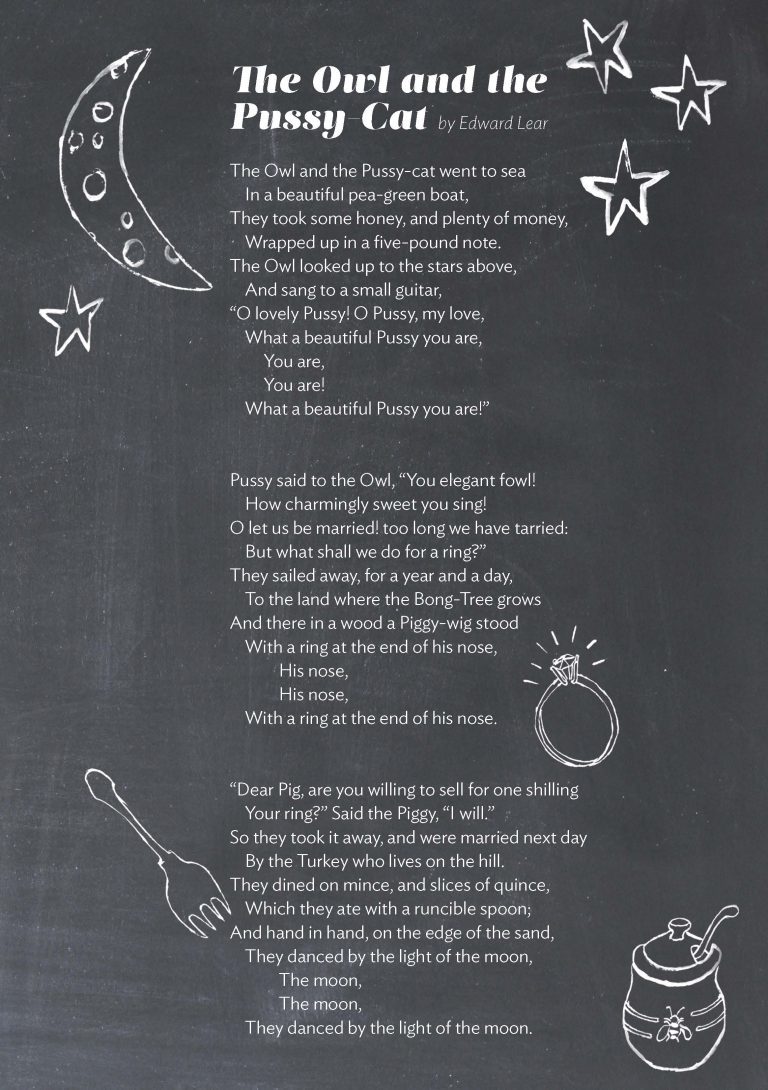 The Owl and the
Pussy-Cat by Edward Lear
The Owl and the Pussy-cat went to sea
In a beautiful pea-green boat,
They took some honey, and plenty of money,
Wrapped up in a five-pound note.
The Owl looked up to the stars above,
And sang to a small guitar,
“O lovely Pussy! O Pussy, my love,
What a beautiful Pussy you are,
You are,
You are!
What a beautiful Pussy you are!”
Pussy said to the Owl, “You elegant fowl!
How charmingly sweet you sing!
O let us be married! too long we have tarried:
But what shall we do for a ring?”
They sailed away, for a year and a day,
To the land where the Bong-Tree grows
And there in a wood a Piggy-wig stood
With a ring at the end of his nose,
His nose,
His nose,
With a ring at the end of his nose.
“Dear Pig, are you willing to sell for one shilling
Your ring?” Said the Piggy, “I will.”
So they took it away, and were married next day
By the Turkey who lives on the hill.
They dined on mince, and slices of quince,
Which they ate with a runcible spoon;
And hand in hand, on the edge of the sand,
They danced by the light of the moon,
The moon,
The moon,
They danced by the light of the moon.